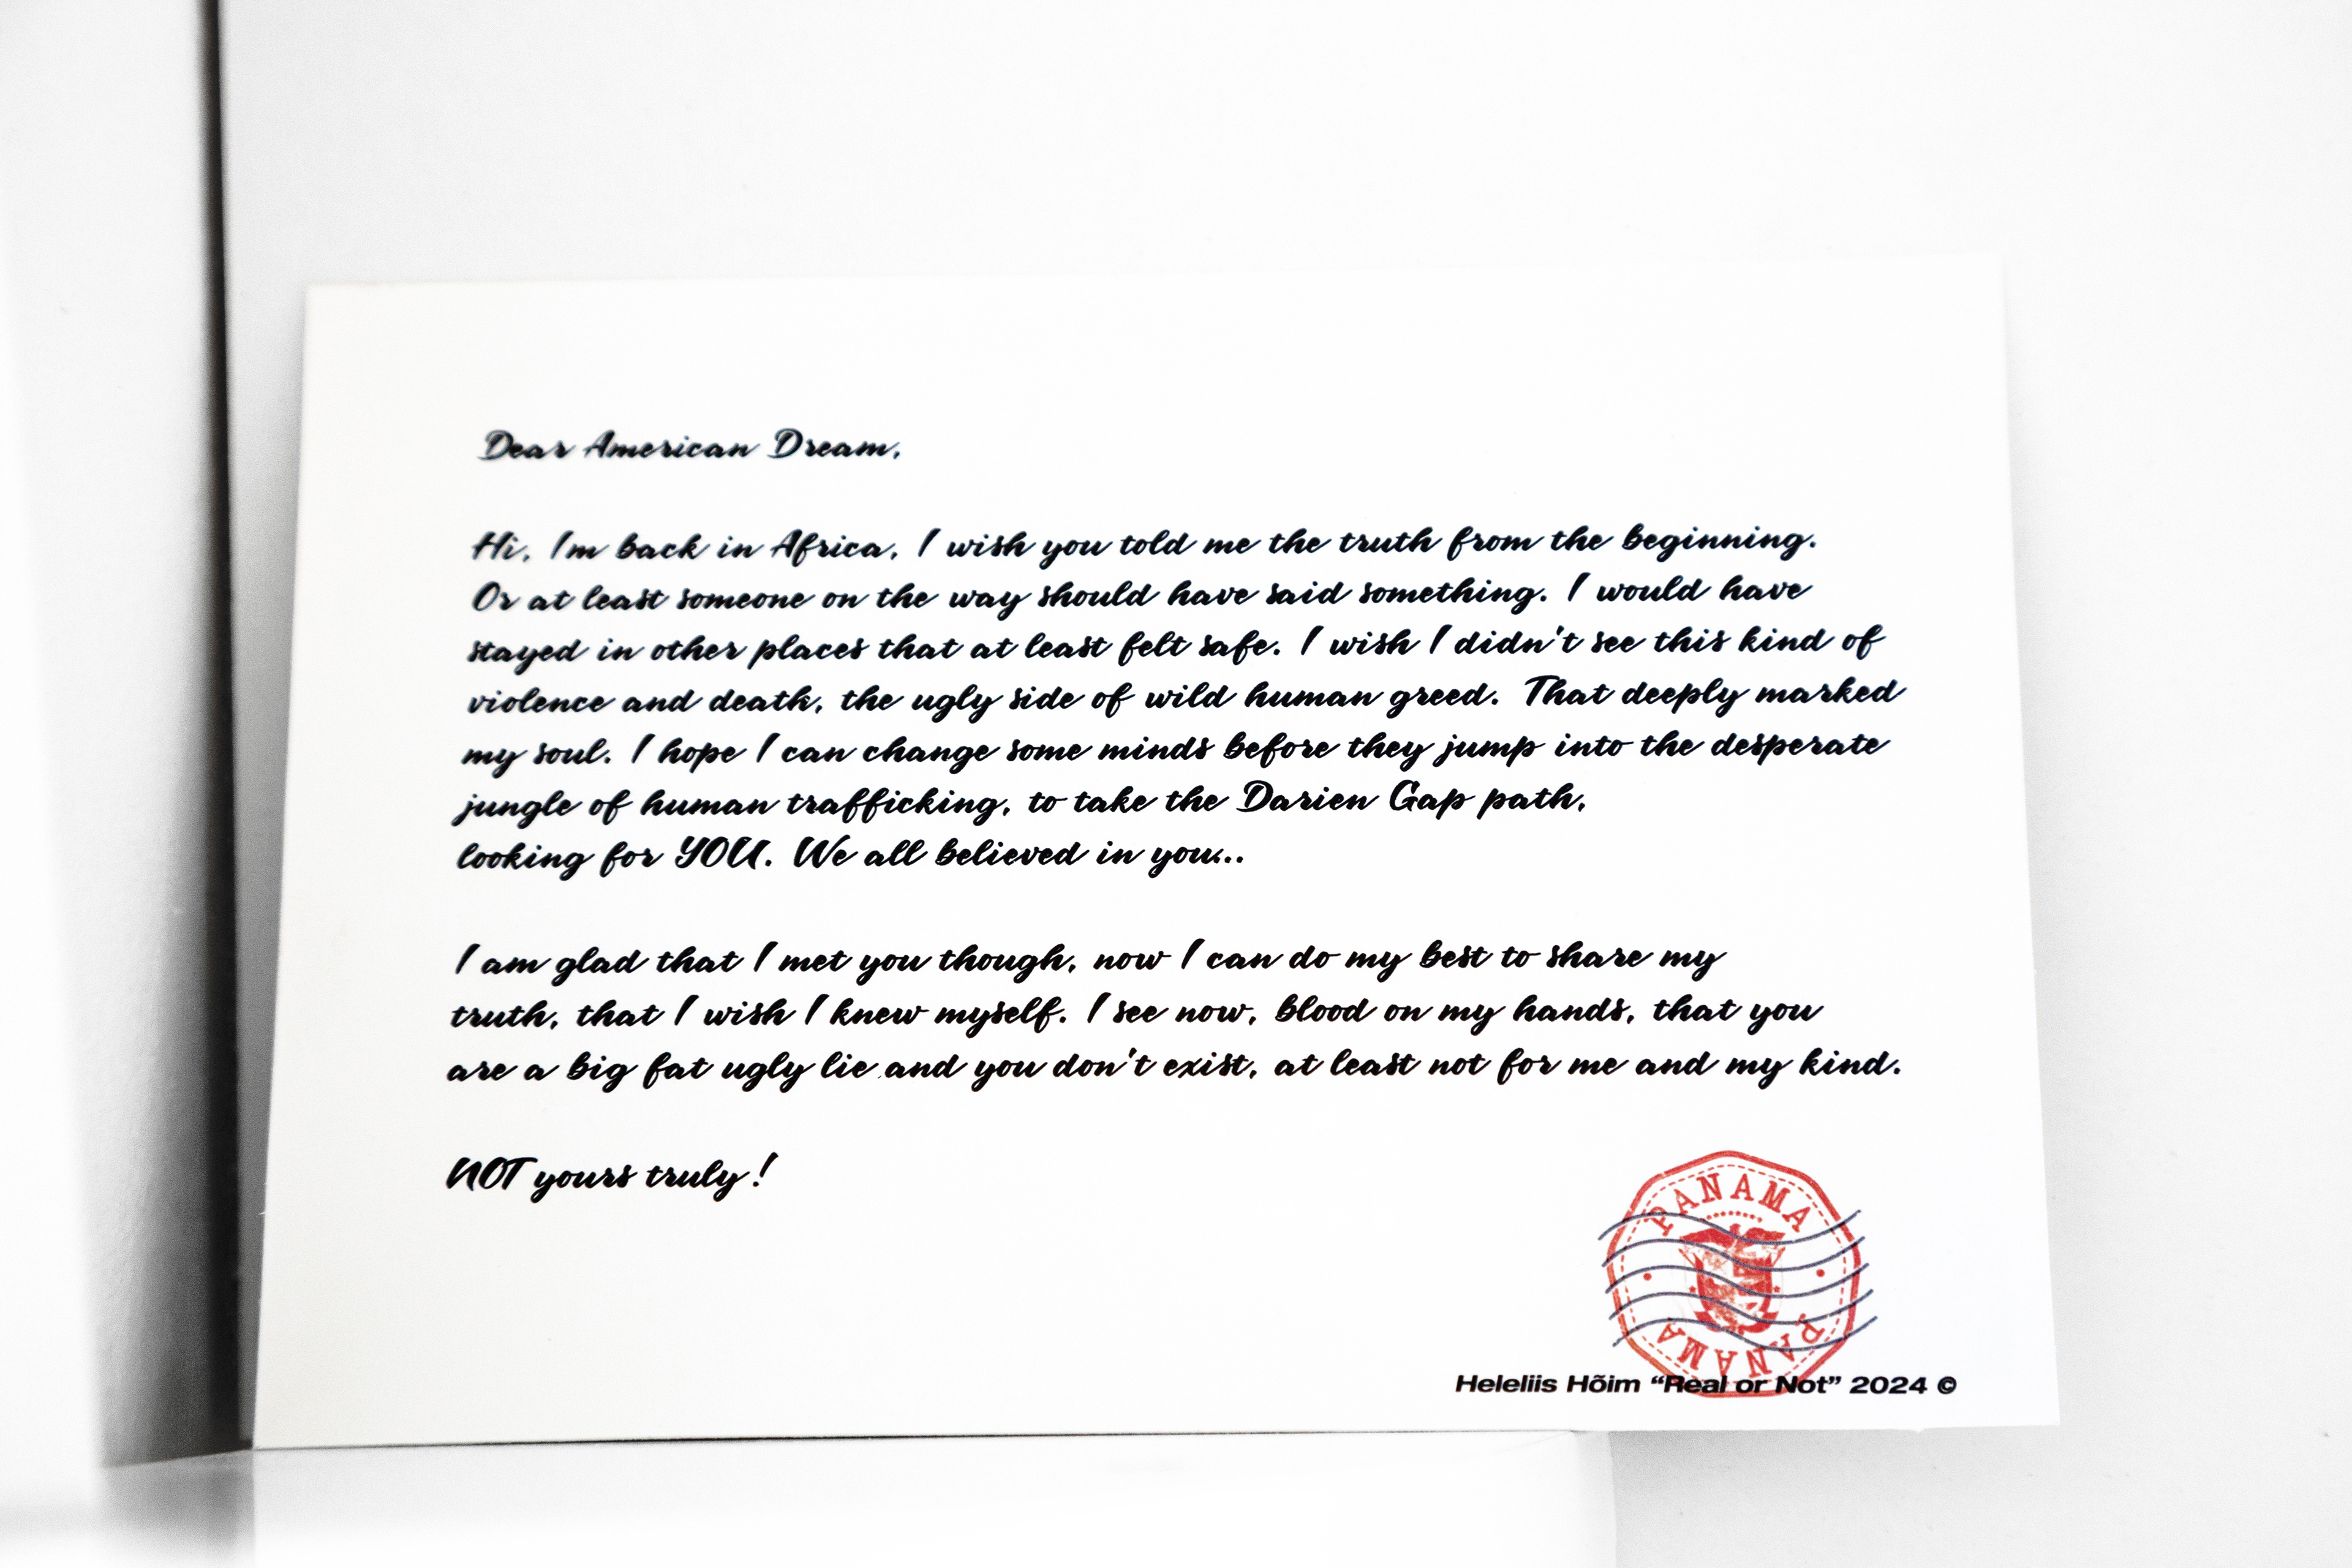 Dear American Dream,
Hi, I'm back in Africa, I wish you told me the truth from the beginning.
Or at least someone on the way should have said something. I would have
stayed in other places that at least felt safe. I wish I didn't see this kind of
violence and death, the ugly side of wild human greed. That deeply marked
my soul. I hope I can change some minds before they jump into the desperate
jungle of human trafficking, to take the Darien Gap path,
looking for YOU. We all believed in you...
I am glad that I met you though, now I can do my best to share my
truth, that I wish I knew myself. I see now, blood on my hands, that you
are a big fat ugly lie and you don't exist, at least not for me and my kind.
NOT yours truly!
PANAMA
PANAMA
Heleliis Hõim “Real or Not” 2024 ©